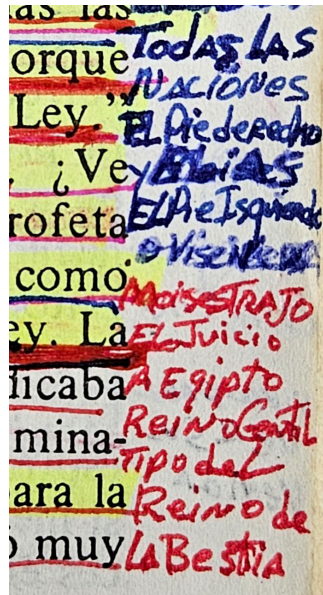 as las
orque
Ley.”
¿Ve
rofeta
como
ey. La
icaba
mina-
ara la
muy
TODAS LAS
NACIONES
EL Pie derecho
y ELiAS
EL Pie Isquierdo
o Viseversa
MOiSES TRAJO
EL Juicio
A EGipto
REiNO GeNtiL
Tipo deL
REiNO de
LA BEStiA